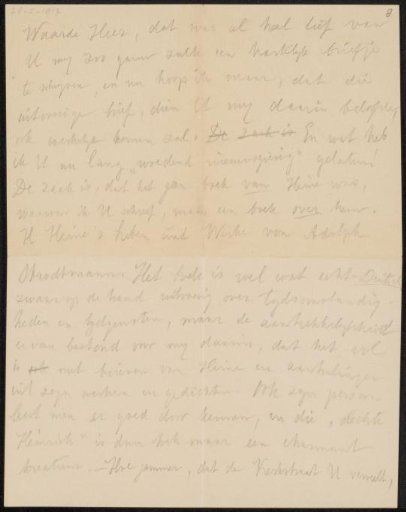 Waarde Heer, dat was al heel lief van
U my zoo gauw zulk een hartelyk briefje
te schryven, en nu hoop ik maar, dat die
uitvoerige brief, dien U my daarin belooft,
ook werkelyk komen zal. De zaak is En wat heb
ik U nu lang
De zaak is, dat het geen boek van Heine was,
waarover ik U schreef, maar een boek over hem.
H Heine's Leben und Werke von Adolph
Strodtmann. Het boek is wel wat echt-Duitsch
zwaar op de hand uitvoerig over tydsomstandig-
heden en tydgenooten, maar de aantrekkelykheid
ervan bestond voor my daarin, dat het vol
is met brieven van Heine en aanhalingen
uit zyn werken en gedichten. Ook zyn persoon
leert men er goed door kennen, en die „slechte
Heinrich" is dan toch maar een charmant
creatuur. — Hoe jammer, dat de Kerkstraat U verveelt,